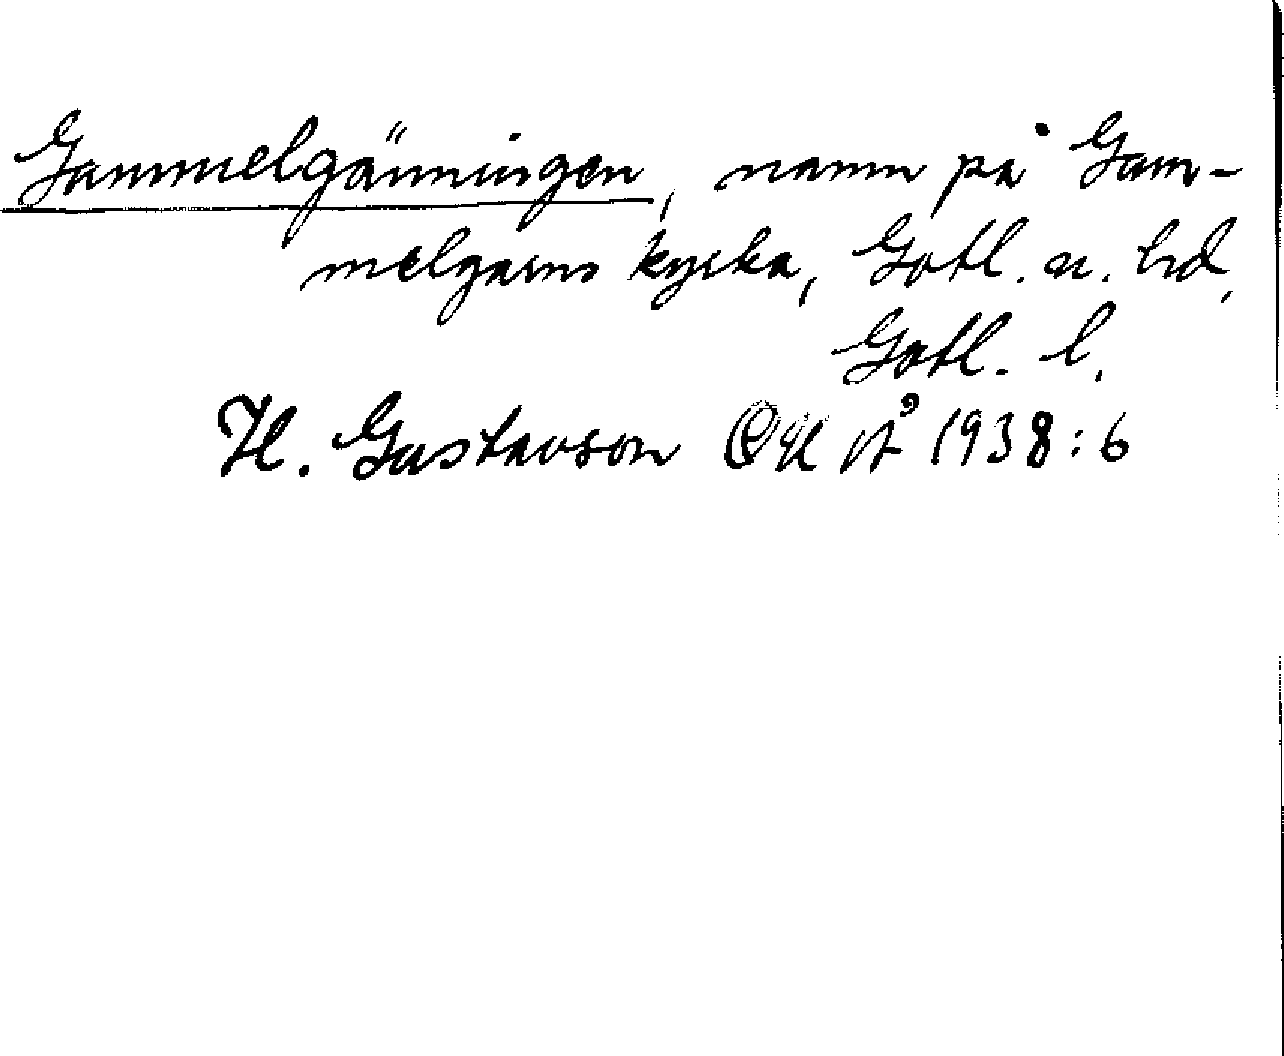 Gammelgänningen, namn på Gam-
melgarns kyrka, Gotl. n. hd,
Gotl. l.
H. Gustavson 1938:6